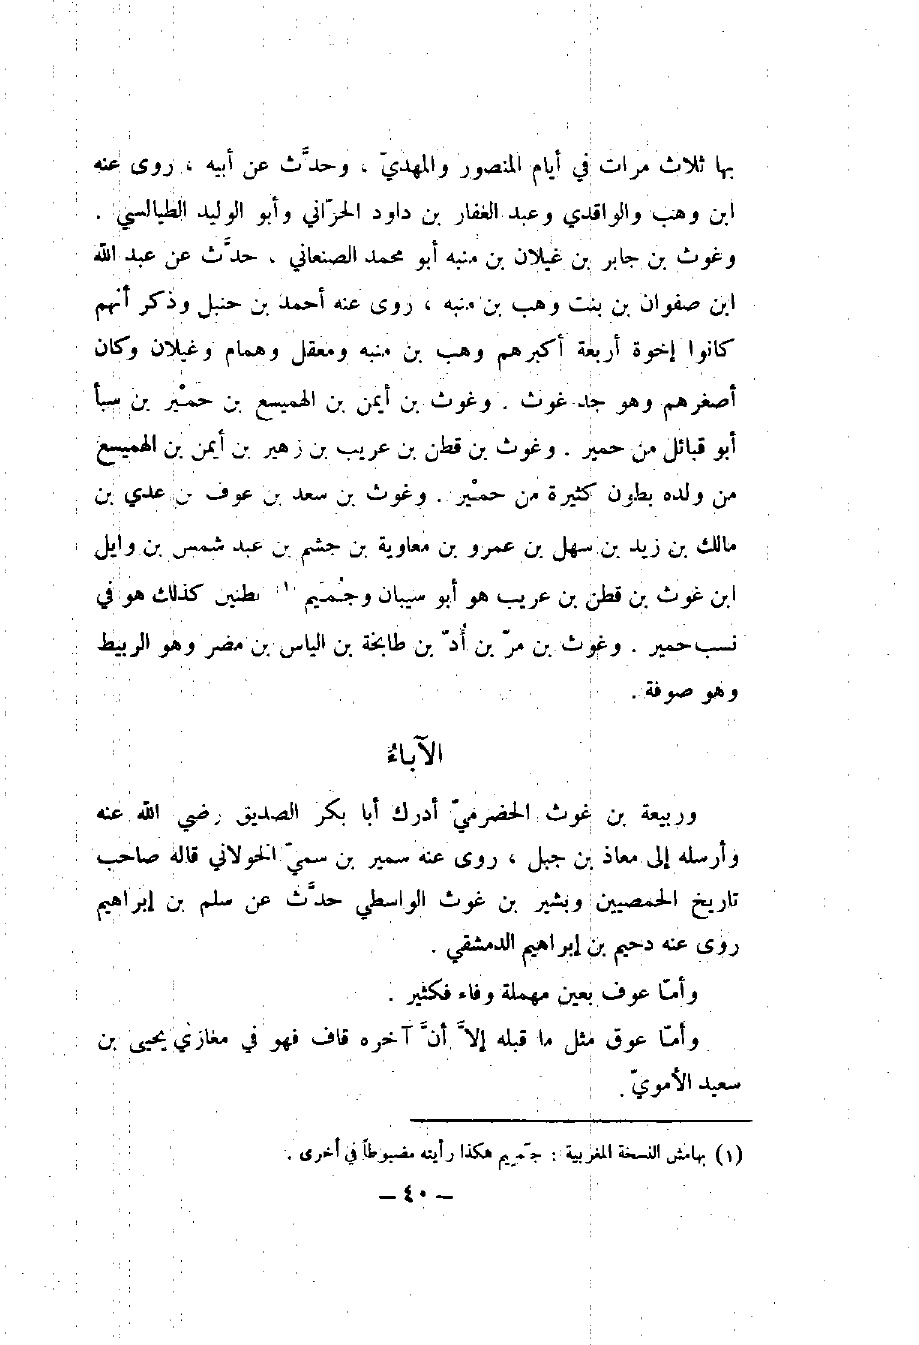 بها ثلاث مرات في أيام المنصور والمهديّ ، وحدَّث عن أبيه ، روى عنه
ابن وهب والواقدي وعبد الغفار بن داود الحرّاني وأبو الوليد الطيالسي .
وغوث بن جابر بن غيلان بن منبه أبو محمد الصنعاني . حدَّث عن عبد الله
ابن صفوان بن بنت وهب بن منبه ، روى عنه أحمد بن حنبل وذكر أنهم
كانوا إخوة أربعة أكبرهم وهب بن منبه ومعقل وهمام وغيلان وكان
أصغرهم وهو جد غوث . وغوث بن أيمن بن الهميسع بن حمْير بن سبأ
أبو قبائل من حمير . وغوث بن قطن بن عريب بن زهير بن أيمن بن الهميسع
من ولده بطون كثيرة من حمْير . وغوث بن سعد بن عوف بن عدي بن
مالك بن زيد بن سهل بن عمرو بن معاوية بن جشم بن عبد شمس بن وايل
ابن غوث بن قطن بن عريب هو أبو سيبان وجُميَم (١) بطنين كذلك هو في
نسب حمير . وغوث بن مرّ بن أُدّ بن طابخة بن الياس بن مضر وهو الربيط
وهو صوفة .
الآباءُ
وربيعة بن غوث الحضرميّ أدرك أبا بكر الصديق رضي الله عنه
وأرسله إلى معاذ بن جبل ، روى عنه سمير بن سميّ الخولاني قاله صاحب
تاريخ الحمصيين وبشير بن غوث الواسطي حدَّث عن سلم بن إبراهيم
روى عنه دحيم بن إبراهيم الدمشقي .
وأمّا عوف بعين مهملة وفاء فكثير .
وأمّا عوق مثل ما قبله إلاَّ أنَّ آخره قاف فهو في مغازي يحيى بن
سعيد الأمويّ .
(١) بهامش النسخة المغربية : هكذا رأيته مضبوطاً في أخرى .
– ٤٠ –